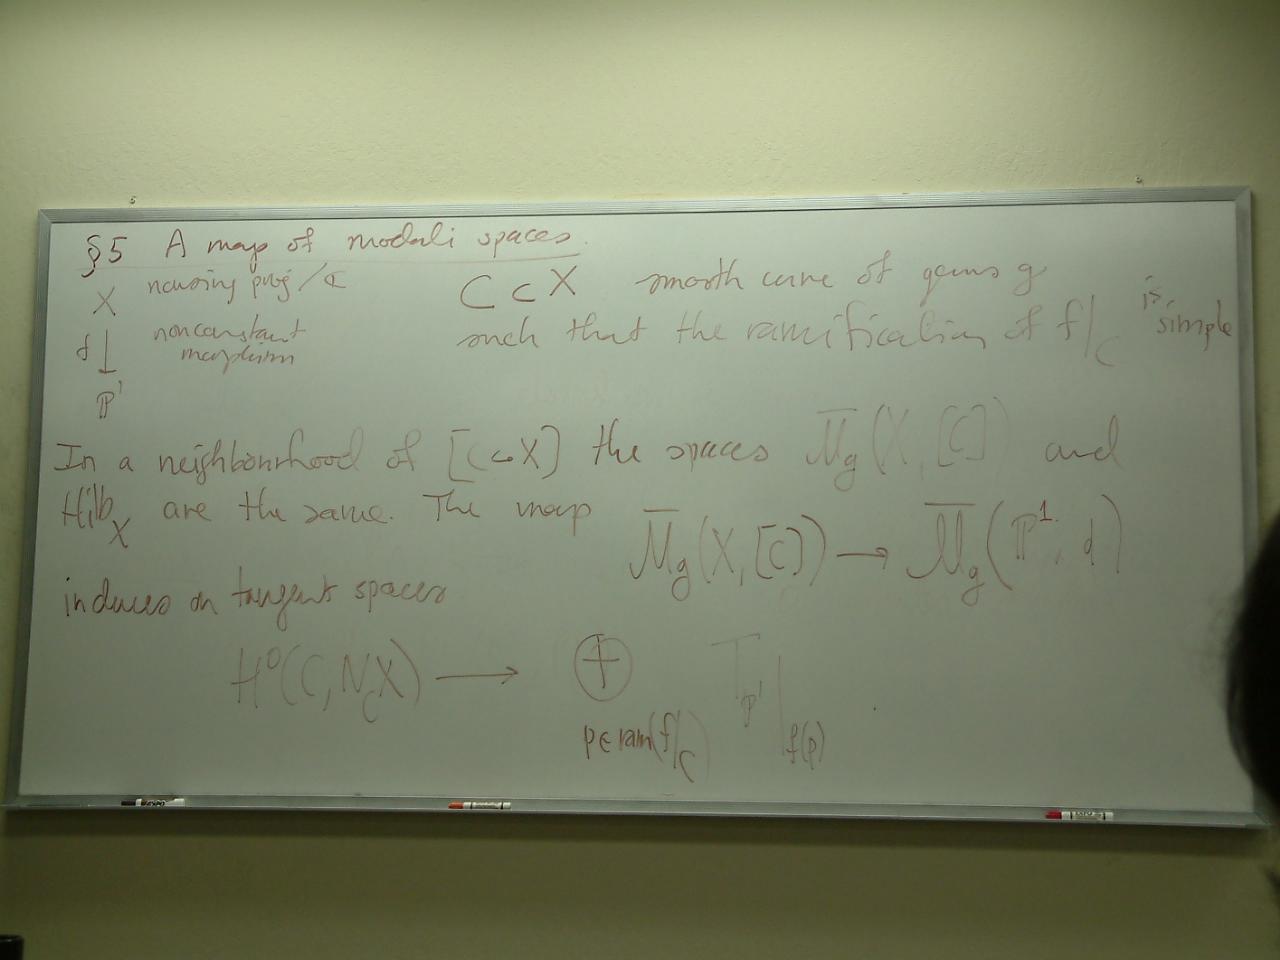 §5 A map of moduli spaces.
X nonsing proj / ℂ
f ↓ nonconstant morphism
ℙ¹
C ⊂ X smooth curve of genus g
such that the ramification of f|_C is simple
In a neighbourhood of [C ↪ X] the spaces M̄_g(X, [C]) and
Hilb_X are the same. The map M̄_g(X, [C]) → M̄_g(ℙ¹, d)
induces on tangent spaces
H⁰(C, N_C X) ⟶ ⊕_{p ∈ ram(f|_C)} T_{ℙ¹}|_{f(p)}